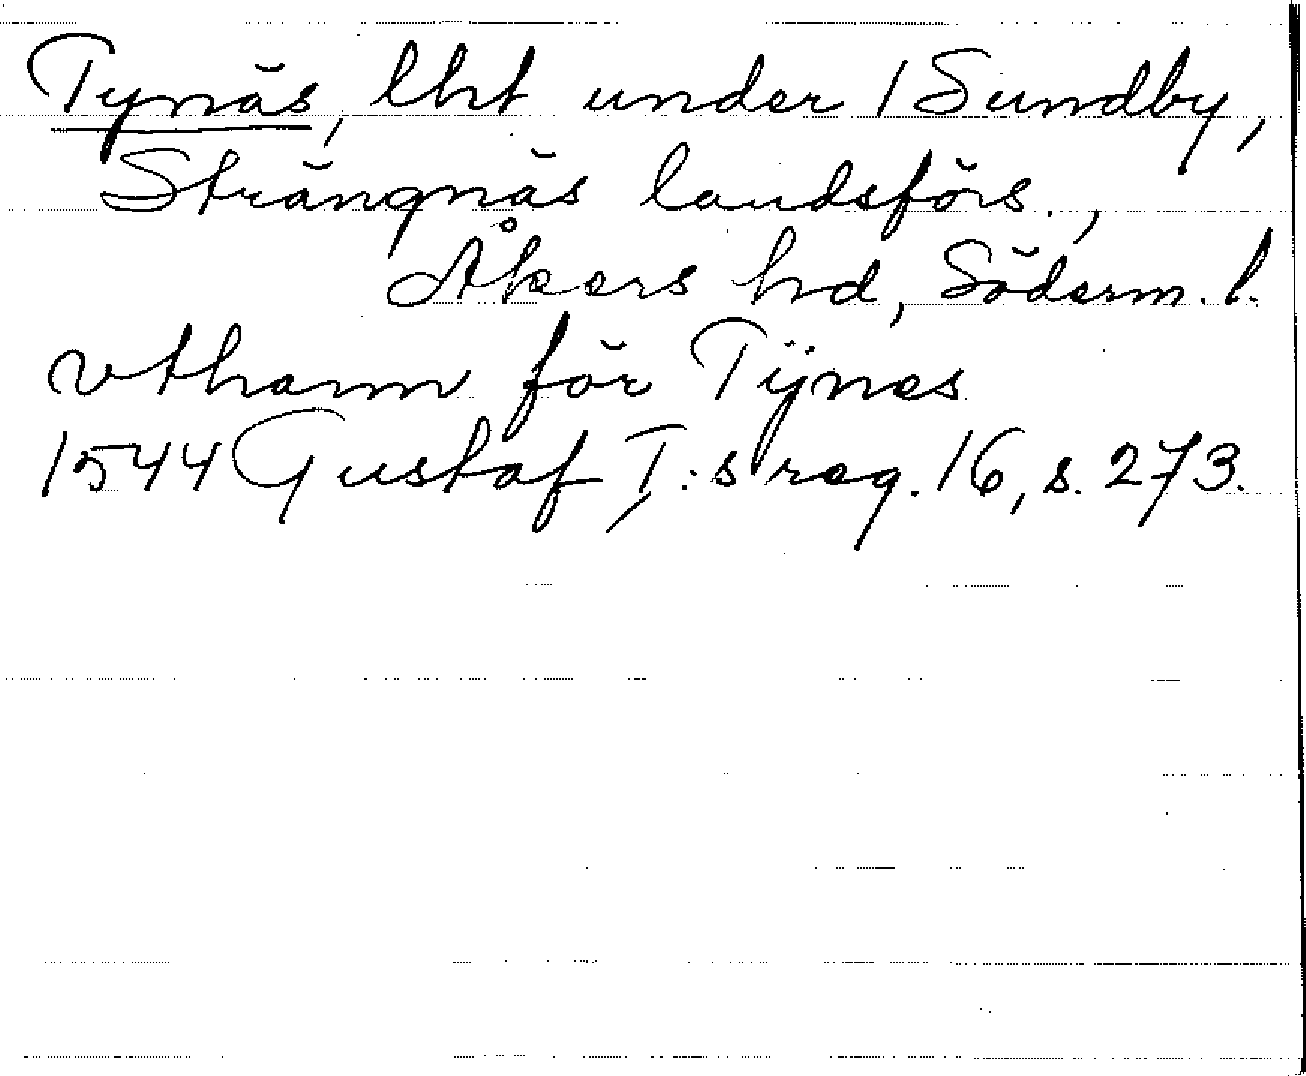 Tynäs, lht under 1 Sundby,
Strängnäs landsförs.,
Åkers hd, Söderm. l.
vthann för Tÿnes
1544 Gustaf I:s reg. 16, s. 273.